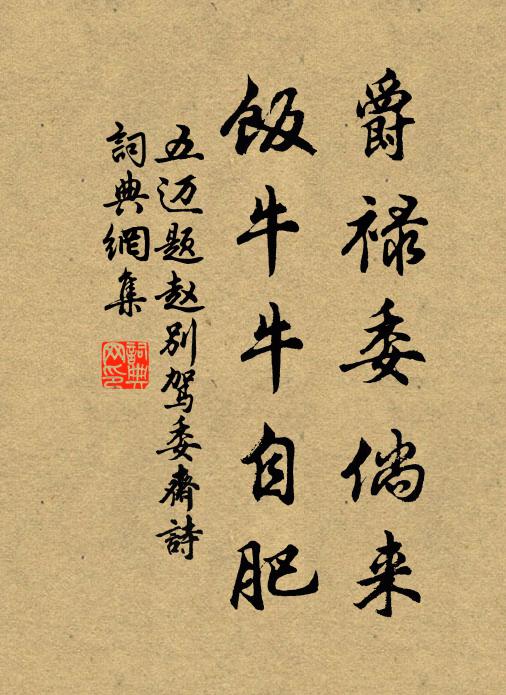 爵禄委倘来
飯牛牛自肥
五迈题赵别駕委齋詩
詞典網集
詞典網印